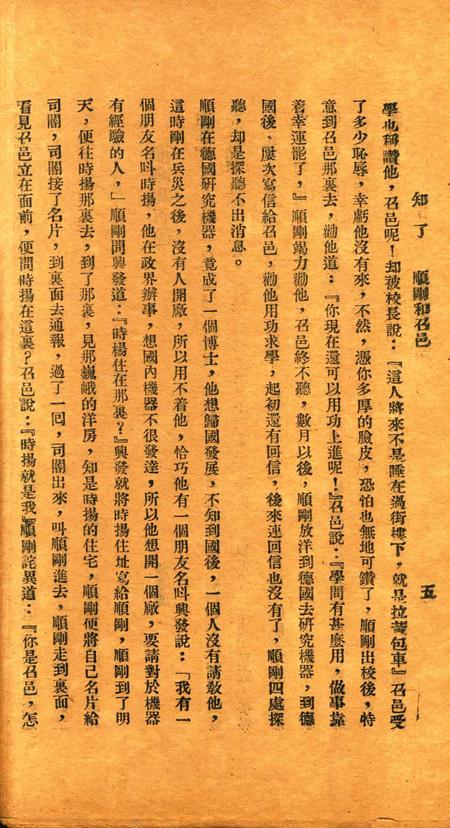 知了　順剛和召邑　五
學也稱讚他，召邑呢！却被校長說：『這人將來不是睡在過街樓下，就是拉黃包車』召邑受
了多少恥辱，幸虧他沒有來，不然，憑你多厚的臉皮，恐怕也無地可鑽了，順剛出校後，特
意到召邑那裏去，勸他道：『你現在還可以用功上進呢！』召邑說：『學問有甚麼用，做事靠
着幸運罷了，』順剛竭力勸他，召邑終不聽，數月以後，順剛放洋到德國去研究機器，到德
國後，屢次寫信給召邑，勸他用功求學，起初還有回信，後來連回信也沒有了，順剛四處探
聽，却是探聽不出消息。
順剛在德國研究機器，竟成了一個博士，他想歸國發展，不知到國後，一個人沒有請敎他，
這時剛在兵災之後，沒有人開廠，所以用不着他，恰巧他有一個朋友名叫興發說：「我有一
個朋友名叫時揚，他在政界辦事，想國內機器不很發達，所以他想開一個廠，要請對於機器
有經驗的人，」順剛問興發道：『時楊住在那裏？』興發就將時揚住址寫給順剛，順剛到了明
天，便往時揚那裏去，到了那裏，見那巍峨的洋房，知是時揚的住宅，順剛便將自己名片給
司閽，司閽接了名片，到裏面去通報，過了一囘，司閽出來，叫順剛進去，順剛走到裏面，
看見召邑立在面前，便問時揚在這裏？召邑說：『時揚就是我』順剛詫異道：『你是召邑，怎